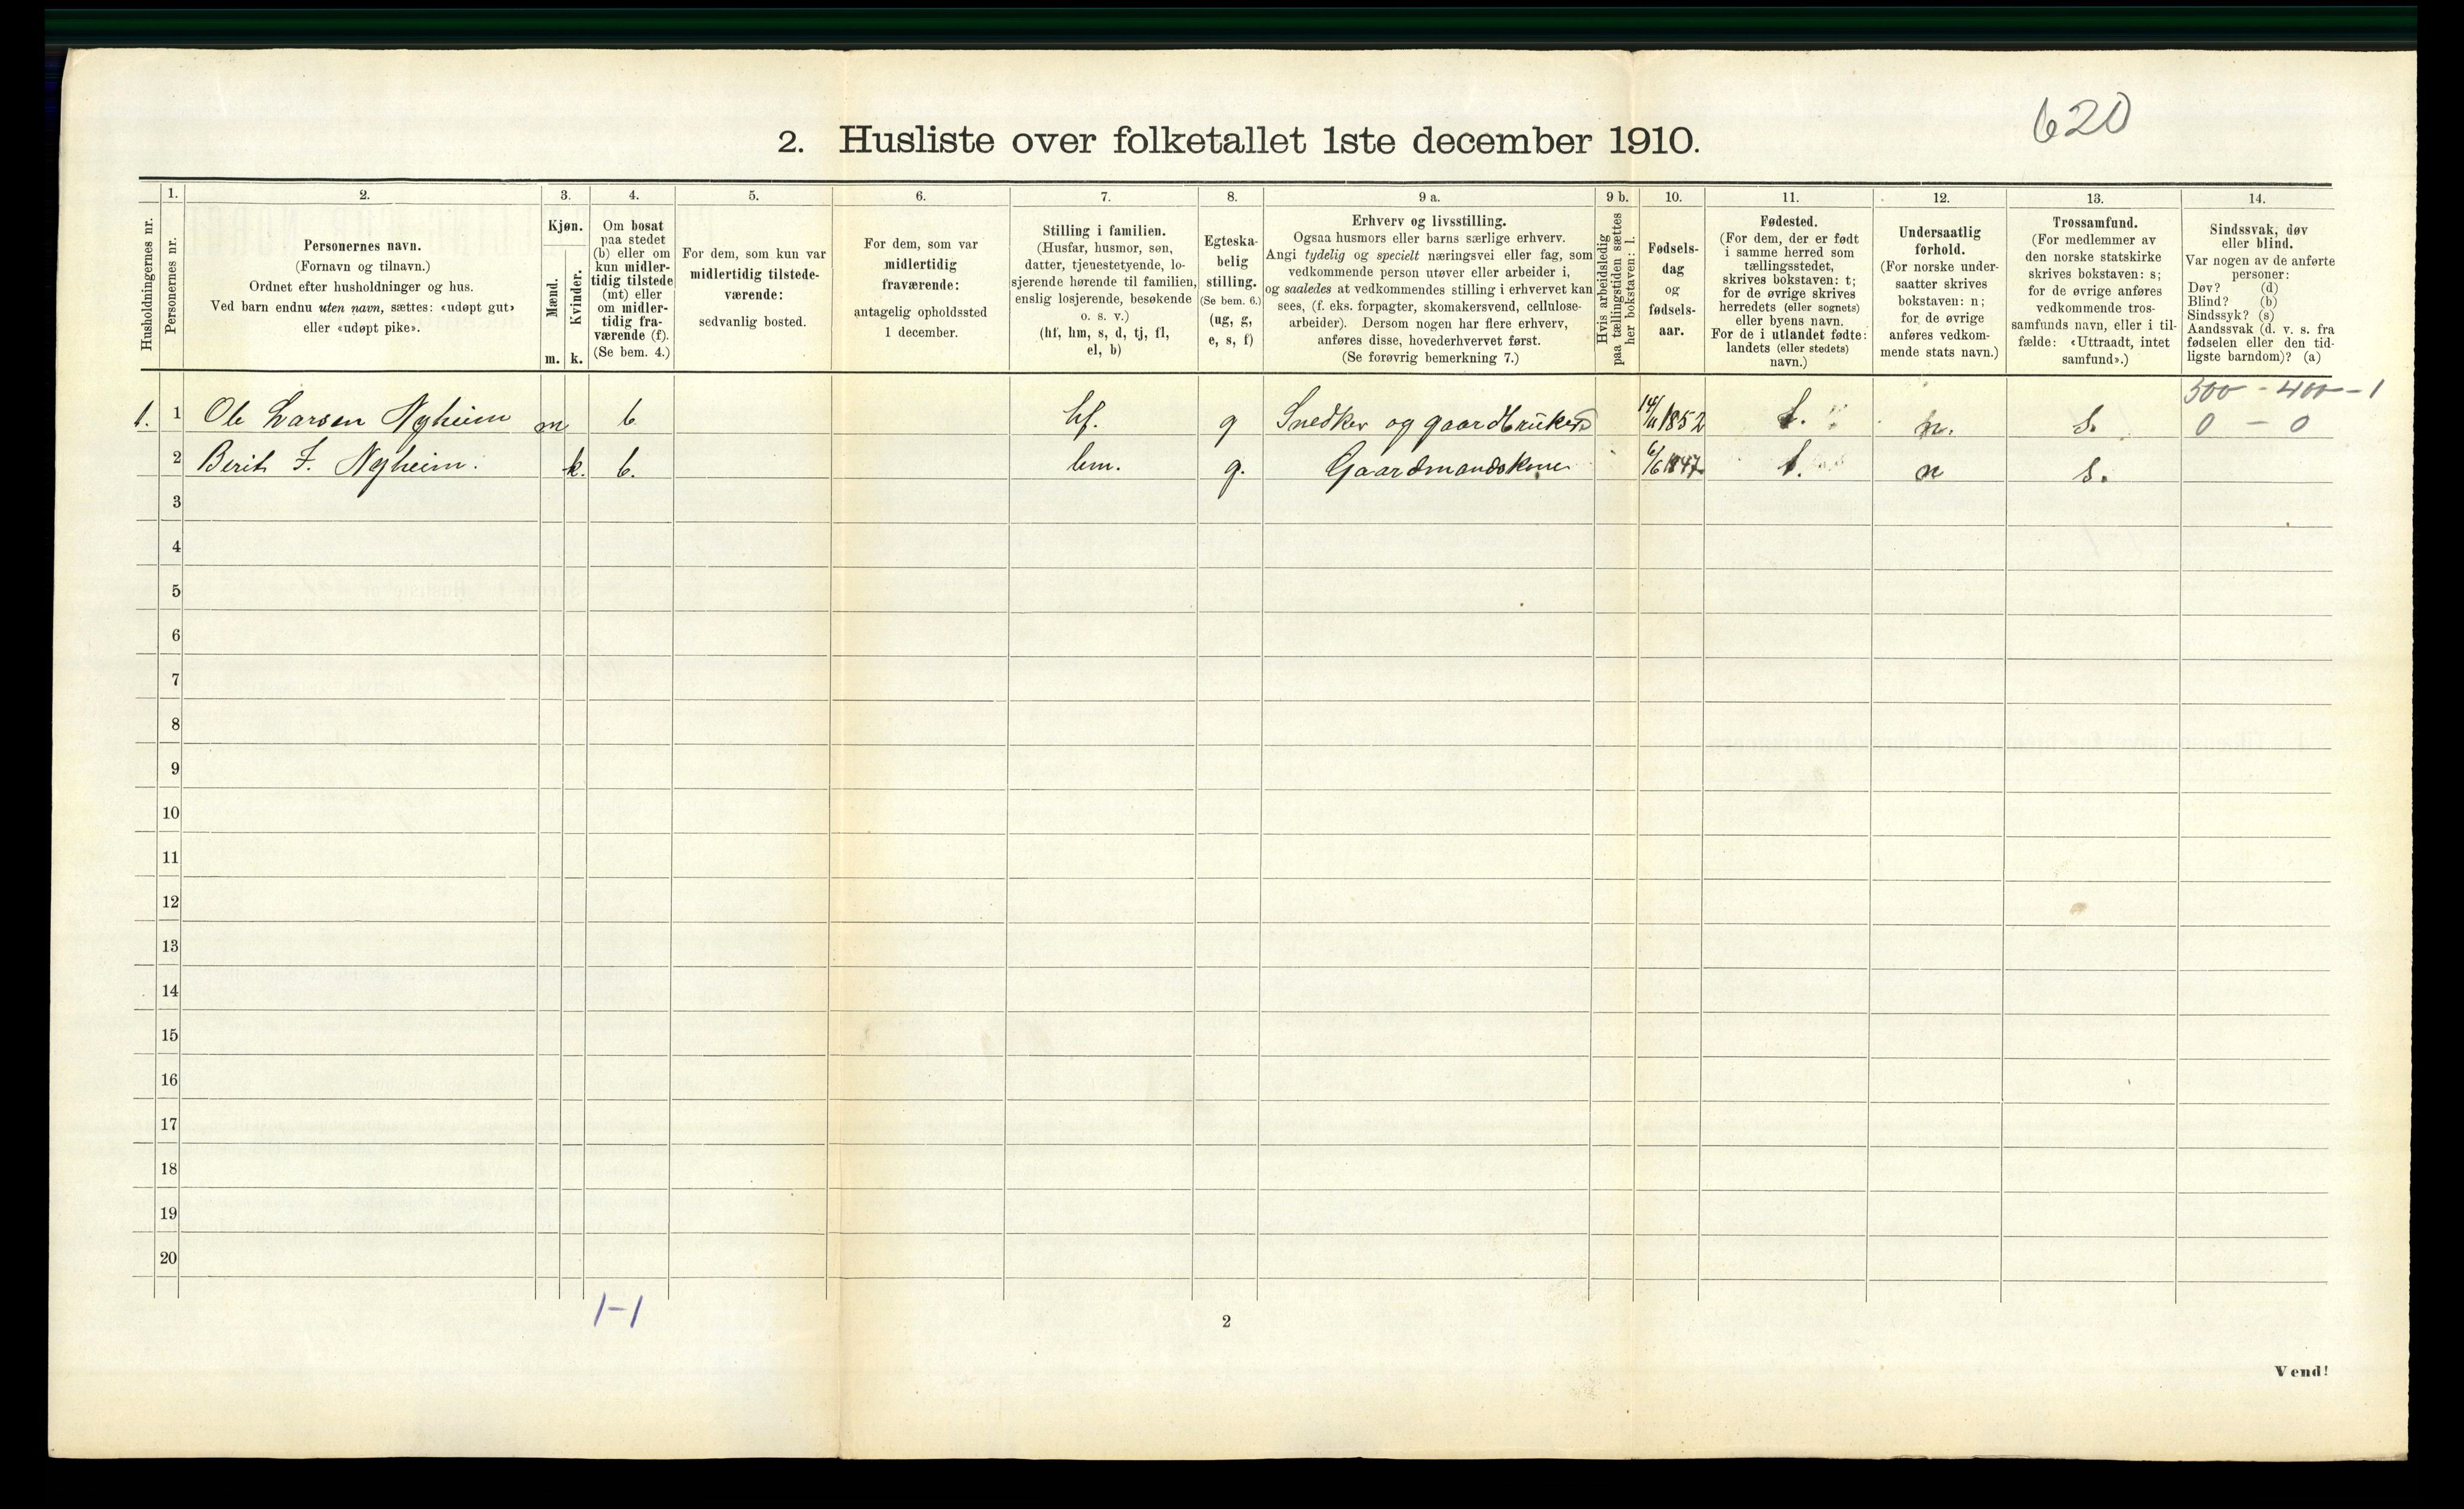 620
2. Husliste over folketallet 1ste december 1910.
Husholdningernes nr.
1.
Personernes nr.
2.
Personernes navn.
(Fornavn og tilnavn.)
Ordnet efter husholdninger og hus.
Ved barn endnu uten navn, sættes: «udøpt gut»
eller «udøpt pike».
3.
Kjøn.
Mænd.
Kvinder.
m. k.
4.
Om bosat
paa stedet
(b) eller om
kun midler-
tidig tilstede
(mt) eller
om midler-
tidig fra-
værende (f).
(Se bem. 4.)
5.
For dem, som kun var
midlertidig tilstede-
værende:
sedvanlig bosted.
6.
For dem, som var
midlertidig
fraværende:
antagelig opholdssted
1 december.
7.
Stilling i familien.
(Husfar, husmor, søn,
datter, tjenestetyende, lo-
sjerende hørende til familien,
enslig losjerende, besøkende
o. s. v.)
(hf, hm, s, d, tj, fl,
el, b)
8.
Egteska-
belig
stilling.
(Se bem. 6.)
(ug, g,
e, s, f)
9 a.
Erhverv og livsstilling.
Ogsaa husmors eller barns særlige erhverv.
Angi tydelig og specielt næringsvei eller fag, som
vedkommende person utøver eller arbeider i,
og saaledes at vedkommendes stilling i erhvervet kan
sees, (f. eks. forpagter, skomakersvend, cellulose-
arbeider). Dersom nogen har flere erhverv,
anføres disse, hovederhvervet først.
(Se forøvrig bemerkning 7.)
9 b.
Hvis arbeidsledig
paa tællingstiden sættes
her bokstaven: l.
10.
Fødsels-
dag
og
fødsels-
aar.
11.
Fødested.
(For dem, der er født
i samme herred som
tællingsstedet,
skrives bokstaven: t;
for de øvrige skrives
herredets (eller sognets)
eller byens navn.
For de i utlandet fødte:
landets (eller stedets)
navn.)
12.
Undersaatlig
forhold.
(For norske under-
saatter skrives
bokstaven: n;
for de øvrige
anføres vedkom-
mende stats navn.)
13.
Trossamfund.
(For medlemmer av
den norske statskirke
skrives bokstaven: s;
for de øvrige anføres
vedkommende tros-
samfunds navn, eller i til-
fælde: «Uttraadt, intet
samfund».)
14.
Sindssvak, døv
eller blind.
Var nogen av de anførte
personer:
Døv? (d)
Blind? (b)
Sindssyk? (s)
Aandssvak (d. v. s. fra
fødselen eller den tid-
ligste barndom)? (a)
500 - 400 - 1
1. 1 Ole Larsen Nyheim m b hf. g Snedker og gaardbruker 14/11 1852 t. n. s. 0 - 0
2 Berit J. Nyheim. k. b. hm. g. Gaardmandskone 6/6 1847 t. n s.
3
4
5
6
7
8
9
10
11
12
13
14
15
16
17
18
19
20
1-1
2
Vend!